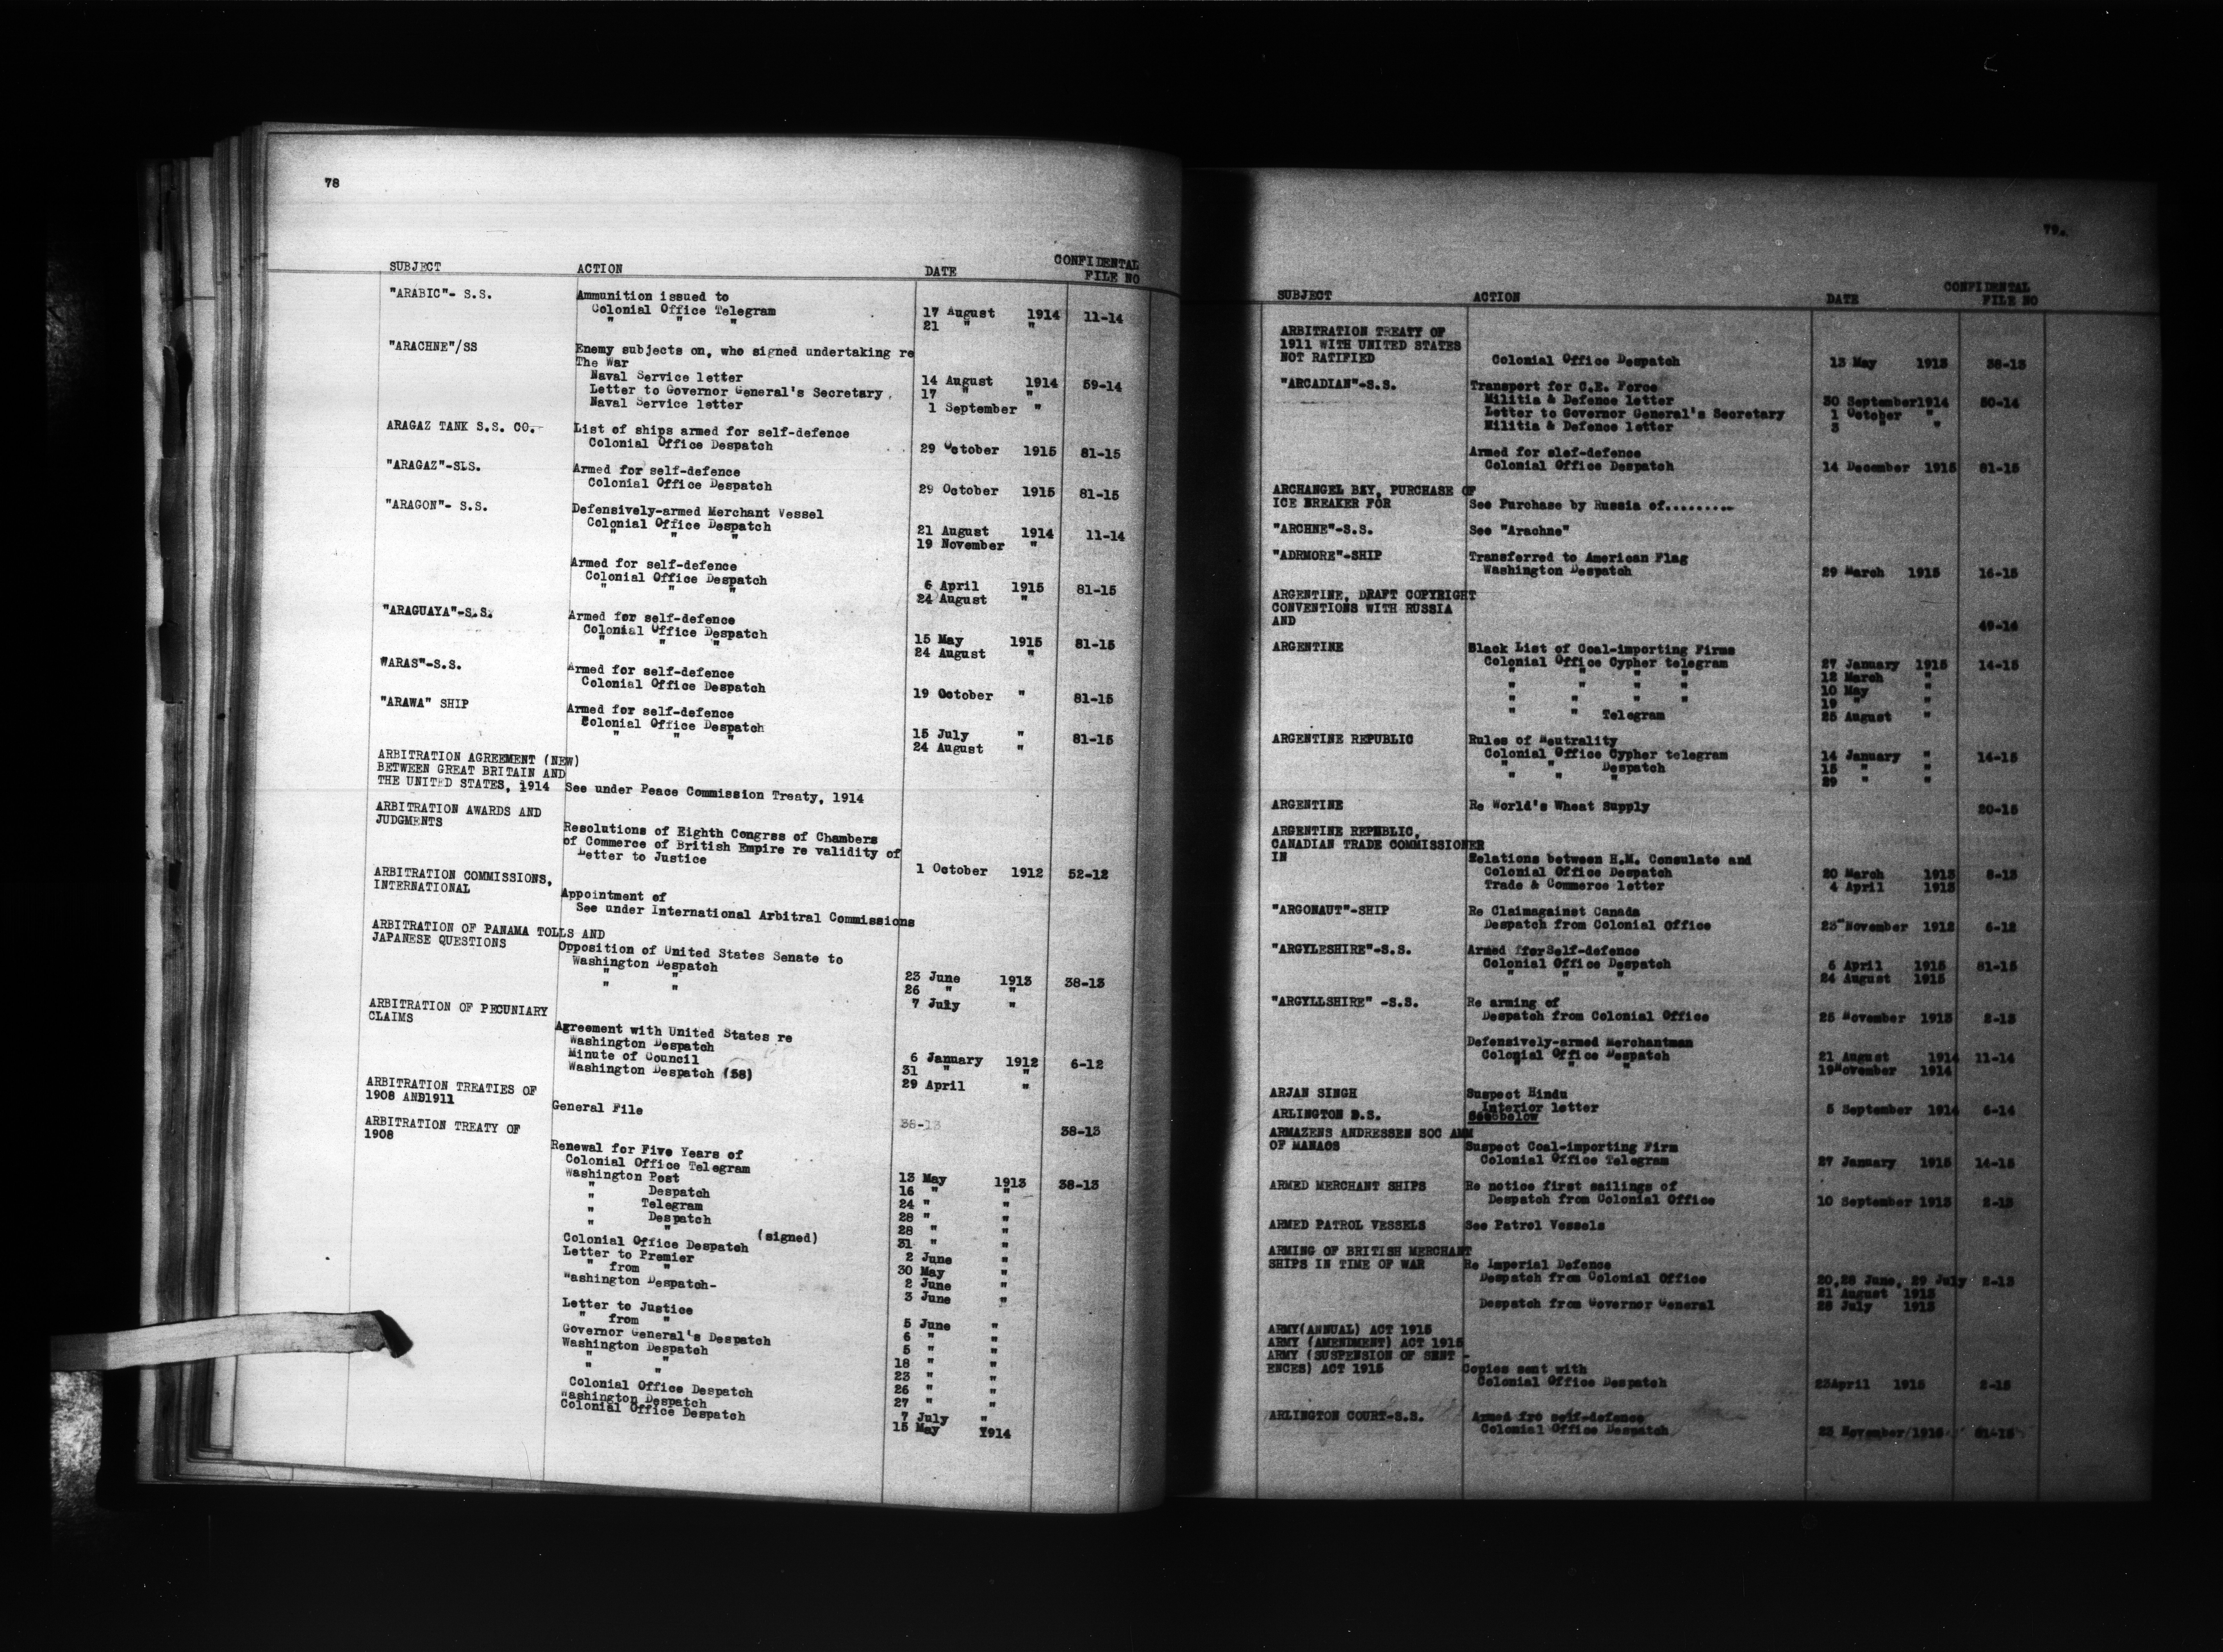 78
SUBJECT ACTION DATE CONFIDENTAL
FILE NO
"ARABIC"- S.S. Ammunition issued to
Colonial Office Telegram 17 August 1914 11-14
" " " 21 " "
"ARACHNE"/SS Enemy subjects on, who signed undertaking re
The War
Naval Service letter 14 August 1914 59-14
Letter to Governor General's Secretary. 17 " "
Naval Service letter 1 September "
ARAGAZ TANK S.S. CO. List of ships armed for self-defence
Colonial Office Despatch 29 October 1915 81-15
"ARAGAZ"-SLS. Armed for self-defence
Colonial Office Despatch 29 October 1915 81-15
"ARAGON"- S.S. Defensively-armed Merchant Vessel
Colonial Office Despatch 21 August 1914 11-14
" " " 19 November "
Armed for self-defence
Colonial Office Despatch 6 April 1915 81-15
" " " 24 August "
"ARAGUAYA"-S.S. Armed for self-defence
Colonial Office Despatch 15 May 1915 81-15
" " " 24 August "
WARAS"-S.S. Armed for self-defence
Colonial Office Despatch 19 October " 81-15
"ARAWA" SHIP Armed for self-defence
Colonial Office Despatch 15 July " 81-15
" " " 24 August "
ARBITRATION AGREEMENT (NEW)
BETWEEN GREAT BRITAIN AND
THE UNITED STATES, 1914 See under Peace Commission Treaty, 1914
ARBITRATION AWARDS AND
JUDGMENTS Resolutions of Eighth Congrss of Chambers
of Commerce of British Empire re validity of
Letter to Justice 1 October 1912 52-12
ARBITRATION COMMISSIONS,
INTERNATIONAL Appointment of
See under International Arbitral Commissions
ARBITRATION OF PANAMA TOLLS AND
JAPANESE QUESTIONS Opposition of United States Senate to
Washington Despatch 23 June 1913 38-13
" " 26 " "
" " 7 July "
ARBITRATION OF PECUNIARY
CLAIMS Agreement with United States re
Washington Despatch 6 January 1912 6-12
Minute of Council 31 " "
Washington Despatch (58) 29 April "
ARBITRATION TREATIES OF
1908 AND1911 General File 38-13 38-13
ARBITRATION TREATY OF
1908 Renewal for Five Years of
Colonial Office Telegram 13 May 1913 38-13
Washington Post 16 " "
" Despatch 24 " "
" Telegram 28 " "
" Despatch 28 " "
" " (signed) 31 " "
Colonial Office Despatch 2 June "
Letter to Premier 30 May "
" from " 2 June "
Washington Despatch- 3 June "
Letter to Justice 5 June "
" from " 6 " "
Governor General's Despatch 5 " "
Washington Despatch 18 " "
" " 23 " "
" " 26 " "
Colonial Office Despatch 27 " "
Washington Despatch 7 July "
Colonial Office Despatch 15 May 1914
79.
SUBJECT ACTION DATE CONFIDENTAL
FILE NO
ARBITRATION TREATY OF
1911 WITH UNITED STATES
NOT RATIFIED Colonial Office Despatch 13 May 1913 38-13
"ARCADIAN"-S.S. Transport for C.E. Force
Militia & Defence letter 30 September1914 50-14
Letter to Governor General's Secretary 1 October "
Militia & Defence letter 3 " "
Armed for slef-defence
Colonial Office Despatch 14 December 1915 81-15
ARCHANGEL BAY, PURCHASE OF
ICE BREAKER FOR See Purchase by Russia of.........
"ARCHNE"-S.S. See "Arachne"
"ADRMORE"-SHIP Transferred to American Flag
Washington Despatch 29 March 1915 16-15
ARGENTINE, DRAFT COPYRIGHT
CONVENTIONS WITH RUSSIA
AND 49-14
ARGENTINE Black List of Coal-importing Firms
Colonial Office Cypher telegram 27 January 1915 14-15
" " " " 12 March "
" " " " 10 May "
" " " " 19 " "
" " Telegram 25 August "
ARGENTINE REPUBLIC Rules of Neutrality
Colonial Office Cypher telegram 14 January " 14-15
" " Despatch 15 " "
" " " 29 " "
ARGENTINE Re World's Wheat Supply 20-15
ARGENTINE REPUBLIC,
CANADIAN TRADE COMMISSIONER
IN Relations between H.M. Consulate and
Colonial Office Despatch 20 March 1913 8-13
Trade & Commerce letter 4 April 1913
"ARGONAUT"-SHIP Re Claimagainst Canada
Despatch from Colonial Office 23 November 1912 6-12
"ARGYLESHIRE"-S.S. Armed fforSelf-defence
Colonial Office Despatch 6 April 1915 81-15
" " " 24 August 1915
"ARGYLLSHIRE" -S.S. Re arming of
Despatch from Colonial Office 25 November 1913 2-13
Defensively-armed Merchantman
Colonial Office Despatch 21 August 1914 11-14
" " " 19November 1914
ARJAN SINGH Suspect Hindu
Interior letter 5 September 1914 6-14
ARLINGTON D.S. Seebelow
ARMAZENS ANDRESSEN SOC AMM
OF MANAOS Suspect Coal-importing Firm
Colonial Office Telegram 27 January 1915 14-15
ARMED MERCHANT SHIPS Re notice first sailings of
Despatch from Colonial Office 10 September 1913 2-13
ARMED PATROL VESSELS See Patrol Vessels
ARMING OF BRITISH MERCHANT
SHIPS IN TIME OF WAR Re Imperial Defence
Despatch from Colonial Office 20,28 June, 29 July 2-13
21 August 1913
Despatch from Governor General 28 July 1913
ARMY(ANNUAL) ACT 1915
ARMY (AMENDMENT) ACT 1915
ARMY (SUSPENSION OF SENT -
ENCES) ACT 1915 Copies sent with
Colonial Office Despatch 23April 1915 2-15
ARLINGTON COURT-S.S. Armed fro self-defence
Colonial Office Despatch 23 November 1915 81-15